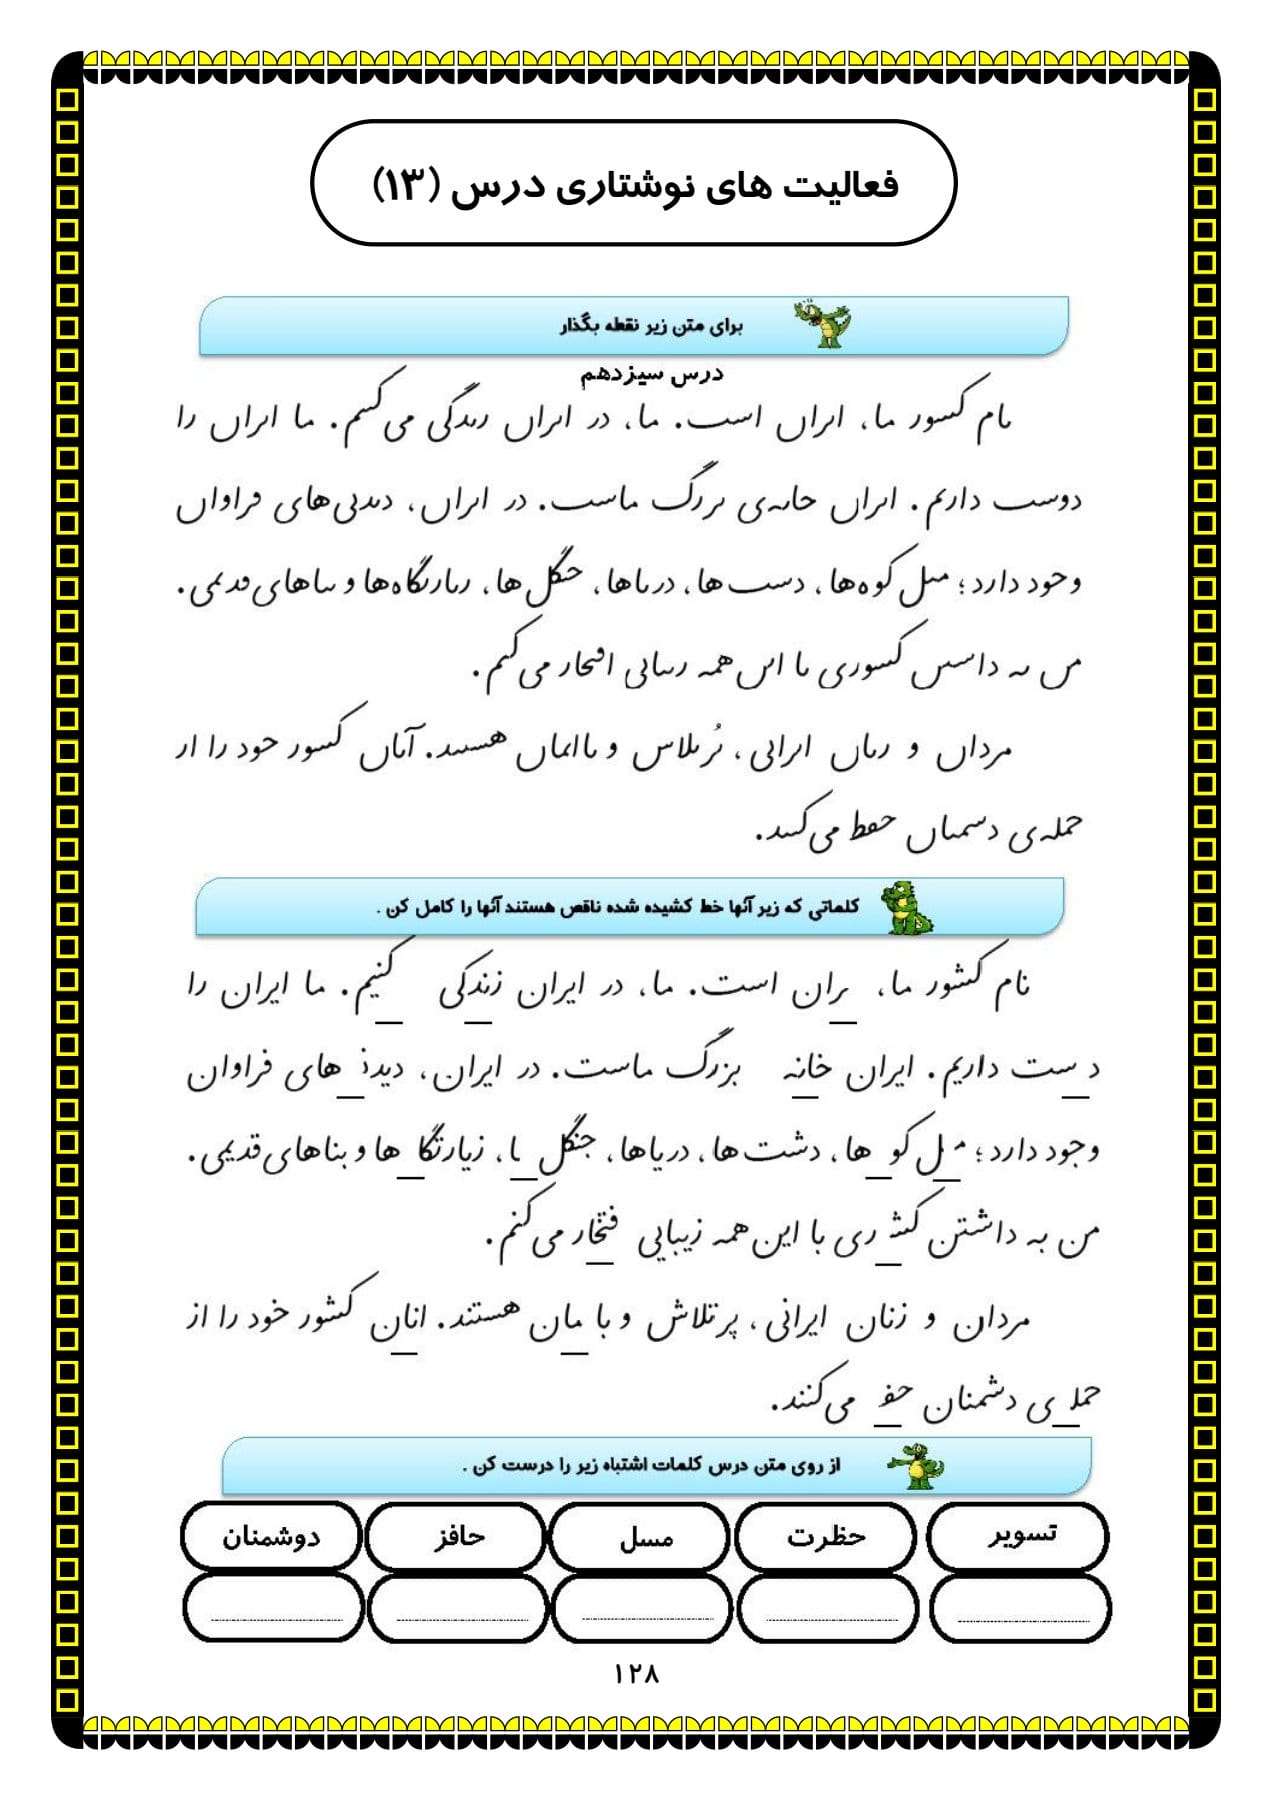 فعالیت های نوشتاری درس (۱۳)
برای متن زیر نقطه بگذار
درس سیزدهم
ٮام کسور ما، اٮراں اسٮ. ما، در اٮراں رٮدگی می‌کٮٮم. ما اٮراں را
دوسٮ دارٮم. اٮراں حاٮه‌ی ٮررگ ماسٮ. در اٮراں، دٮدٮی‌های فراواں
وحود دارد؛ مٮل کوه‌ها، دسٮ‌ها، درٮاها، حٮگل‌ها، رٮارٮگاه‌ها و ٮٮاهای قدٮمی.
مں ٮه داسٮں کسوری ٮا اٮں همه رٮٮاٮی افٮحار می‌کٮم.
مرداں و رٮاں اٮراٮی، ٮُرٮلاس و ٮااٮماں هسٮٮد. آٮاں کسور حود را ار
حمله‌ی دسمٮاں حفط می‌کٮٮد.
کلماتی که زیر آنها خط کشیده شده ناقص هستند آنها را کامل کن .
نام کشور ما، _ یران است. ما، در ایران زندکی _ کنیم. ما ایران را
د _ ست داریم. ایران خانه _ بزرگ ماست. در ایران، دیدنـ _ های فراوان
وجود دارد؛ مـ _ ل کو _ ها، دشت‌ها، دریاها، جنگل _ ا، زیارتگا _ ها و بناهای قدیمی.
من به داشتن کشـ _ ری با این همه زیبایی _ فتخار می‌کنم.
مردان و زنان ایرانی، پرتلاش و با _ مان هستند. انان کشور خود را از
حملـ _ ی دشمنان حفـ _ می‌کنند.
از روی متن درس کلمات اشتباه زیر را درست کن .
تسویر حظرت مسل حافز دوشمنان
۱۲۸